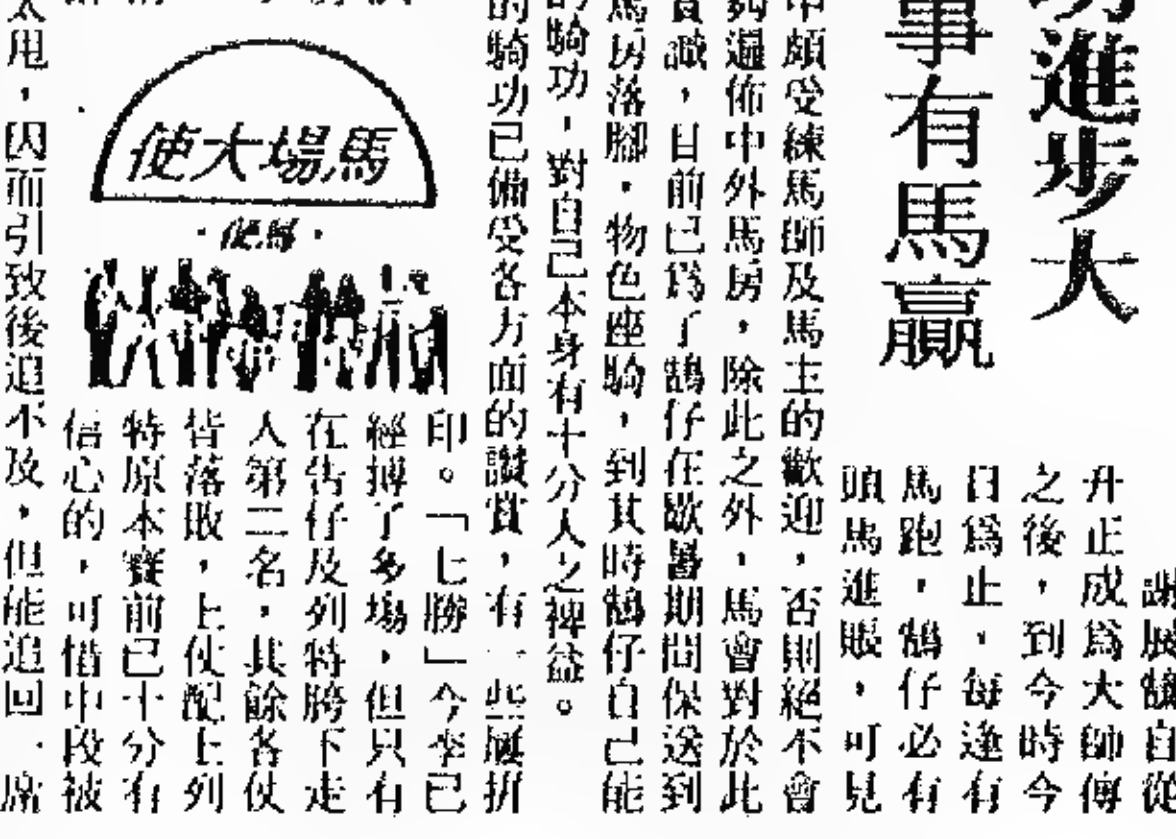 進步大
事有馬贏
謝展鵠自從
升正成爲大師傅
之後，到今時今
日爲止，每逢有
馬跑，鵠仔必有
頭馬進賬，可見
頗受練馬師及馬主的歡迎，否則絕不會
夠遍佈中外馬房，除此之外，馬會對於此
賞識，目前已爲了鵠仔在歇暑期間保送到
馬房落腳，物色座騎，到其時鵠仔自己能
的騎功，對自己本身有十分人之裨益。
的騎功已備受各方面的讚賞，有一些屢拼
馬場大使
·馬使·
印。「七勝」今季已
經搏了多場，但只有
在告仔及列特胯下走
人第二名，其餘各仗
皆落敗，上仗配上列
特原本賽前已十分有
信心的，可惜中段被
太甩，因而引致後追不及，但能追回